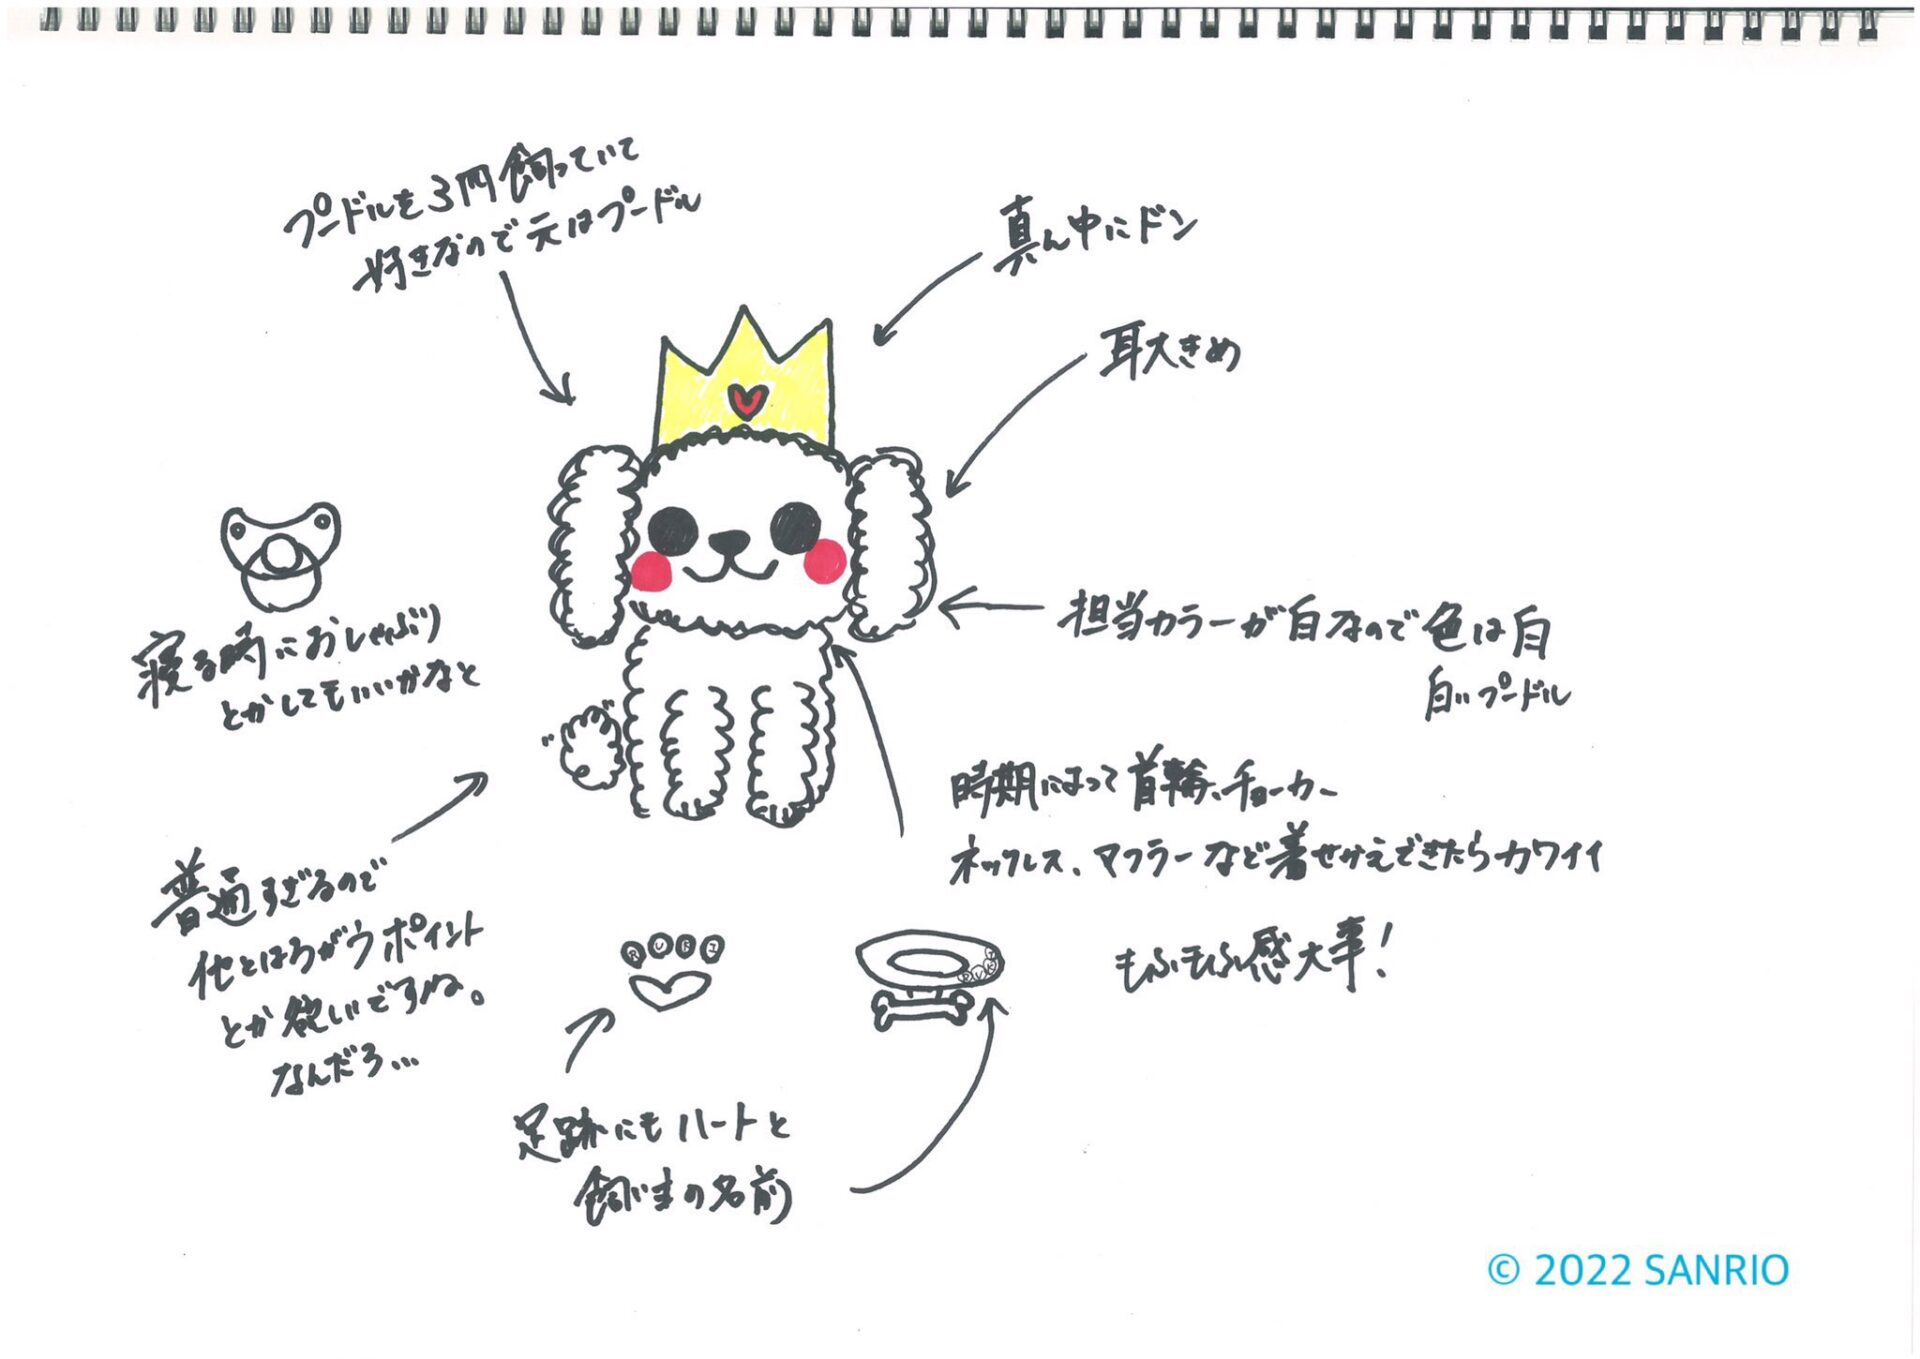 プードルを3匹飼っていて
好きなので元はプードル
真ん中にドン
耳大きめ
寝る時におしゃぶり
とかしてもいいかなと
担当カラーが白なので色は白
白いプードル
時期によって首輪、チョーカー
ネックレス、マフラーなど着せかえできたらカワイイ
もふもふ感大事!
普通すぎるので
他とはちがうポイント
とか欲しいですね。
なんだろ...
R U K I
足跡にもハートと
飼い主の名前
© 2022 SANRIO